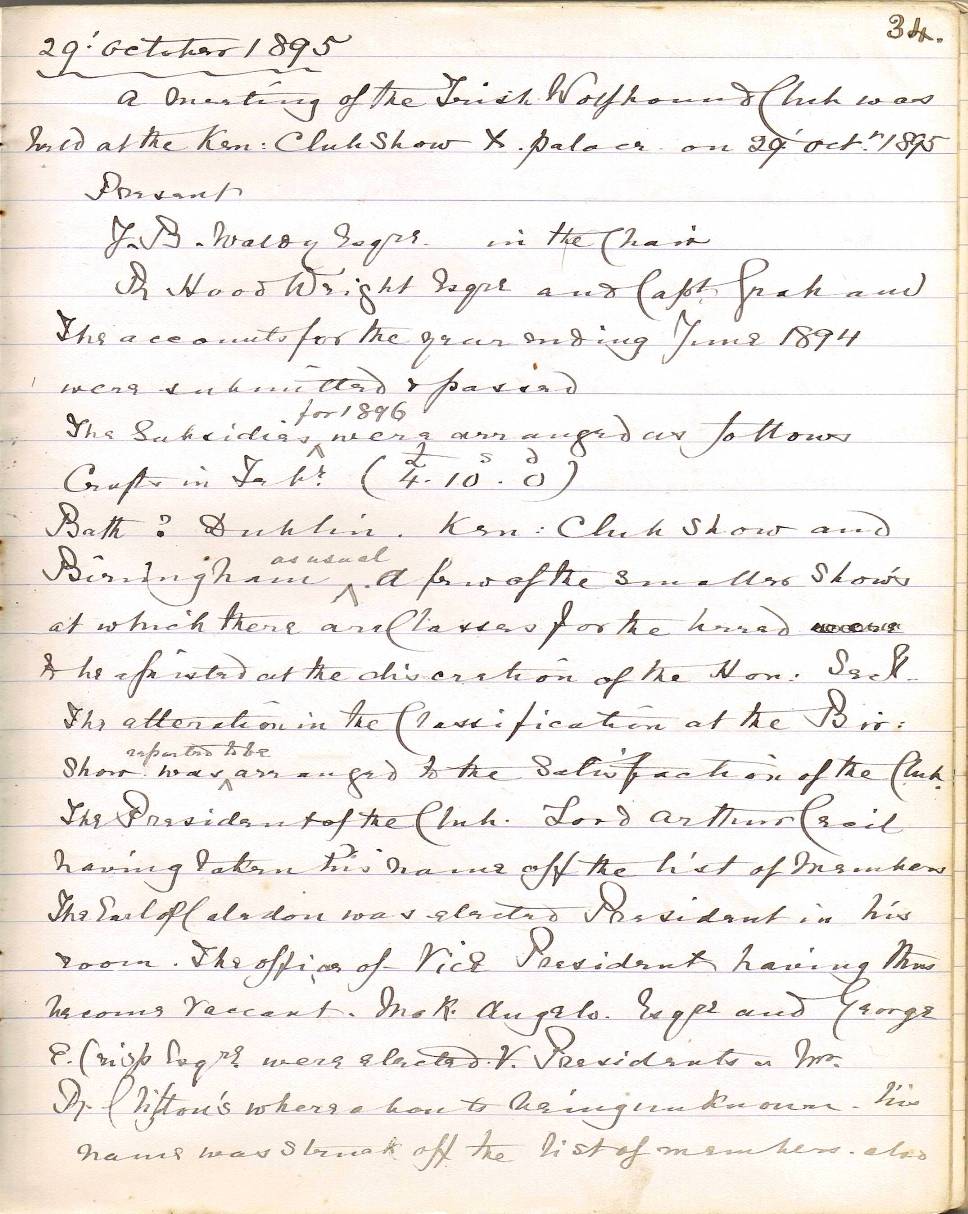 34.
29' October 1895
A meeting of the Irish Wolfhound Club was
held at the Ken: Club Show X. palace on 29' Oct.r 1895
Present
J. B. Waldy Esqre. in the Chair
R Hood Wright Esqre and Capt. Graham
The accounts for the year ending June 1894
were submitted & passed
for 1896
The Subsidies ^ were arranged as follows
£ s d
Crufts in Febr. (4.10.0)
Bath? Dublin. Ken: Club Show and
as usual
Birmingham ^. A few of the smaller shows
at which there are Classes for the breed
to be assisted at the discretion of the Hon: Secy.
The alteration in the Classification at the Bir:
reported to be
Show was ^ arranged to the Satisfaction of the Club.
The President of the Club. Lord Arthur Cecil
having taken his name off the list of Members
The Earl of Caledon was elected President in his
room. The office of Vice President having thus
become vaccant. Angelo. Esqre and George
E. Crisp Esqre were elected V. Presidents Mr.
Clifton's whereabouts being unknown. his
name was Struck off the list of members. also